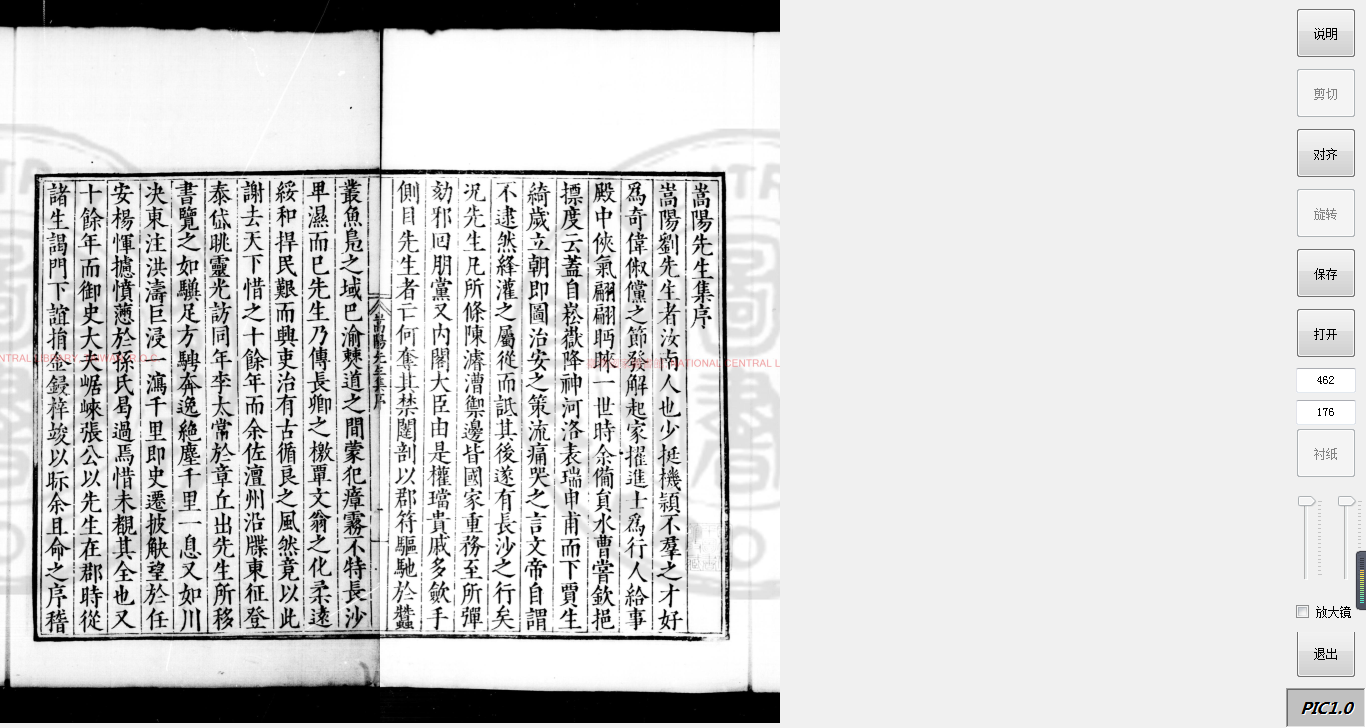 嵩陽先生集序
嵩陽劉先生者汝南人也少挺機頴不羣之才好
爲奇偉俶儻之節發解起家擢進士爲行人給事
殿中俠氣翩翩眄睞一世時余備負水曹嘗欽挹
摽度云蓋自崧嶽降神河洛表瑞申甫而下賈生
綺歲立朝即圖治安之策流痛哭之言文帝自謂
不逮然絳灌之屬從而詆其後遂有長沙之行矣
况先生凡所條陳濬漕禦邊皆國家重務至所彈
劾邪回朋黨又內閣大臣由是權璫貴戚多歛手
側目先生者亡何奪其禁闥剖以郡符驅馳於蠶
嵩陽先生集序
叢魚鳧之域巴渝僰道之間蒙犯瘴霧不特長沙
卑濕而已先生乃傳長卿之檄覃文翁之化柔遠
綏和捍民艱而興吏治有古循良之風然竟以此
謝去天下惜之十餘年而余佐澶州沿牒東征登
泰岱眺靈光訪同年李太常於章丘出先生所移
書覽之如驥足方騁奔逸絶塵千里一息又如川
决東注洪濤巨浸一瀉千里即史遷披觖望於任
安楊惲攄憤懣於孫氏曷過焉惜未覩其全也又
十餘年而御史大夫崌崍張公以先生在郡時從
諸生謁門下誼捐金鋟梓竣以眎余且命之序稽
说明
剪切
对齐
旋转
保存
打开
462
176
衬纸
放大镜
退出
PIC1.0